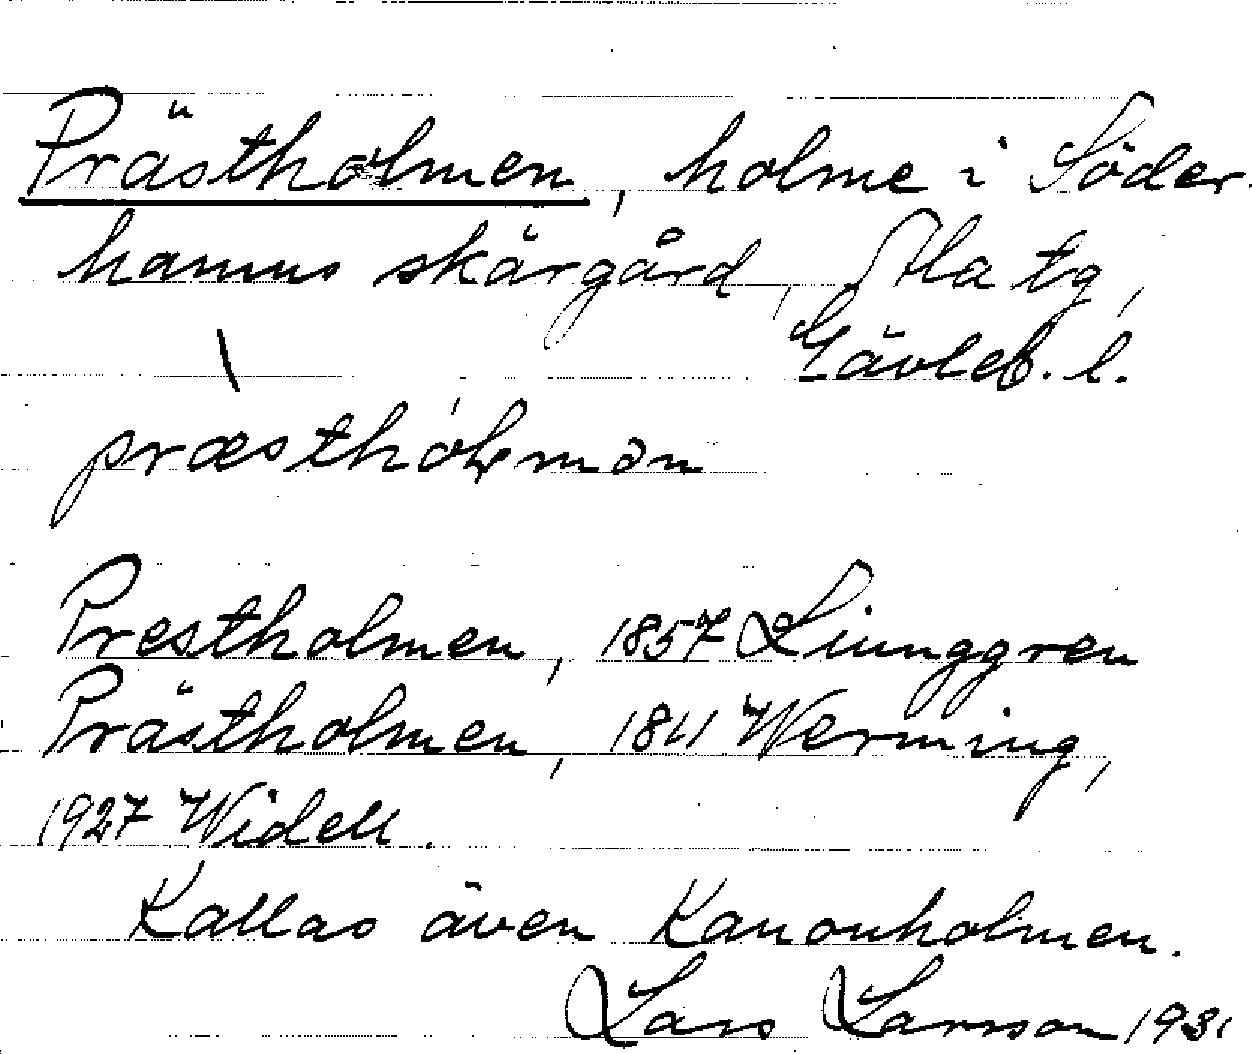 Prästholmen, holme i Söder-
hamns skärgård, Ala tg,
Gävleb. l.
Prestholmen, 1857 Liunggren
Prästholmen, 1811 Werming,
1927 Widell.
Kallas även Kanonholmen.
Lars Larsson 1931